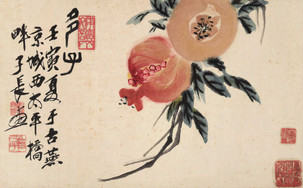 多子
壬寅夏于古燕
京城西太平橋
畔子長画